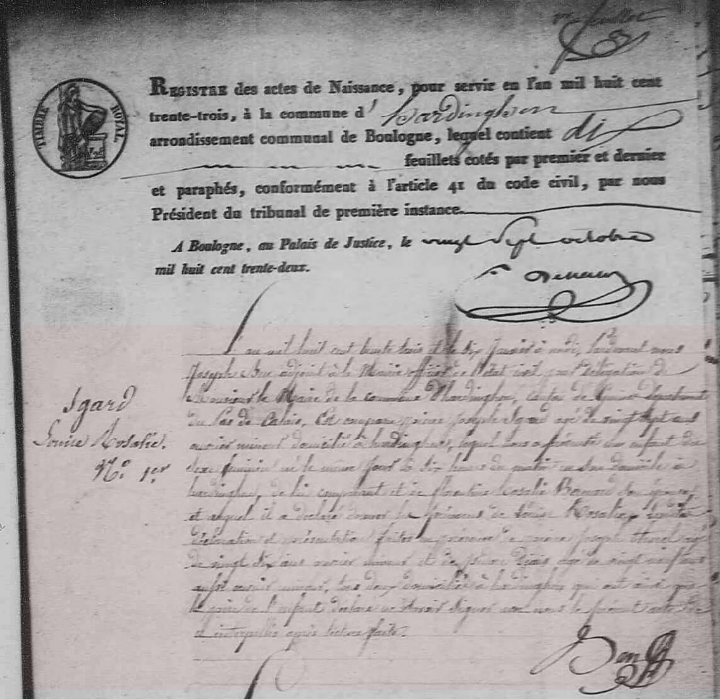 TIMBRE ROYAL
REGISTRE des actes de Naissance, pour servir en l'an mil huit cent
trente-trois, à la commune d' hardinghen
arrondissement communal de Boulogne, lequel contient dix
feuillets cotés par premier et dernier
et paraphés, conformément à l'article 41 du code civil, par nous
Président du tribunal de première instance.
A Boulogne, au Palais de Justice, le vingt sept octobre
mil huit cent trente-deux.
Igard
Louise Rosalie.
N.° 1.er
L'an mil huit cent trente trois et le six Janvier à midi, Pardevant nous
Joseph adjoint à la Mairie officier de l'état civil par délégation de
Monsieur le Maire de la commune d'hardinghen, canton de département
du Pas de Calais, Est comparu pierre Joseph Igard agé de vingt sept ans
ouvrier mineur domicilié à hardinghen, lequel nous a présenté un enfant du
sexe féminin né le même jour à six heures du matin en son domicile à
hardinghen, de lui comparant et de florentine rosalie son épouse,
et auquel il a déclaré donner les prénoms de Louise Rosalie,
déclaration et présentation faites en présence de pierre joseph
de vingt six ans ouvrier mineur et de agé de vingt neuf ans
aussi ouvrier mineur, tous deux domiciliés à hardinghen qui ont ainsi que
le père de l'enfant déclaré ne savoir signer nous le présent acte
interpellés après lecture faite.